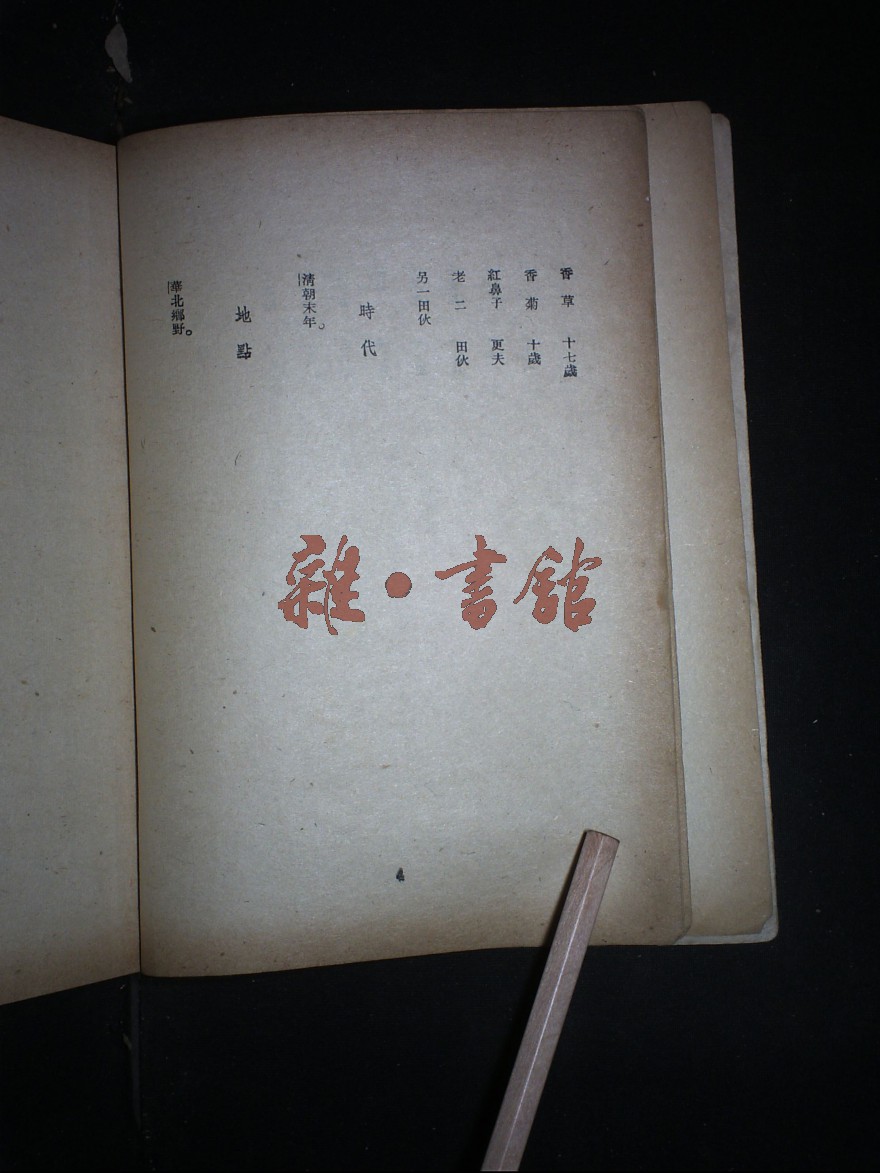 香草　十七歲
香菊　十歲
紅鼻子　更夫
老二　田伙
另一田伙
時代
清朝末年。
地點
華北鄉野。
4
雜·書館